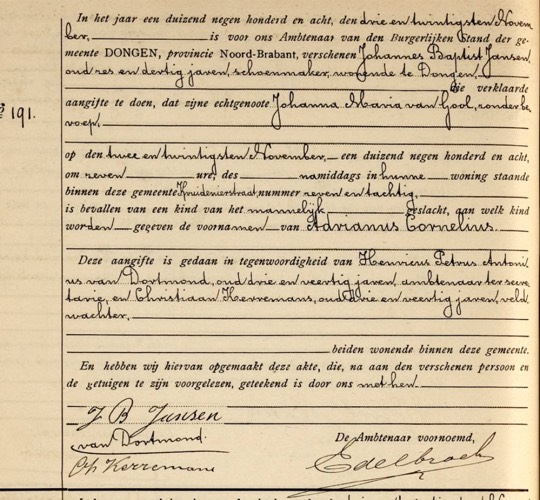 In het jaar een duizend negen honderd en acht, den drie en twintigsten Novem
ber, is voor ons Ambtenaar van den Burgerlijken Stand der ge-
meente DONGEN, provincie Noord-Brabant, verschenen Johannes Baptist Jansen,
oud zes en dertig jaren, schoenmaker, wonende te Dongen,
die verklaarde
aangifte te doen, dat zijne echtgenoote Johanna Maria van Gool, zonder be
roep,
No 191.
op den twee en twintigsten November, een duizend negen honderd en acht,
om zeven ure, des namiddags in hunne woning staande
binnen deze gemeente straat, nummer zeven en tachtig,
is bevallen van een kind van het mannelijk geslacht, aan welk kind
worden gegeven de voornamen van Adrianus Cornelius.
Deze aangifte is gedaan in tegenwoordigheid van Henricus Petrus Antoni
us van Dortmond, oud drie en veertig jaren, ambtenaar ter secre
tarie, en Christiaan Kerremans, oud drie en veertig jaren, veld
wachter,
beiden wonende binnen deze gemeente.
En hebben wij hiervan opgemaakt deze akte, die, na aan den verschenen persoon en
de getuigen te zijn voorgelezen, geteekend is door ons met hen.
J B Jansen
van Dortmond.
De Ambtenaar voornoemd,
Ch Kerremans